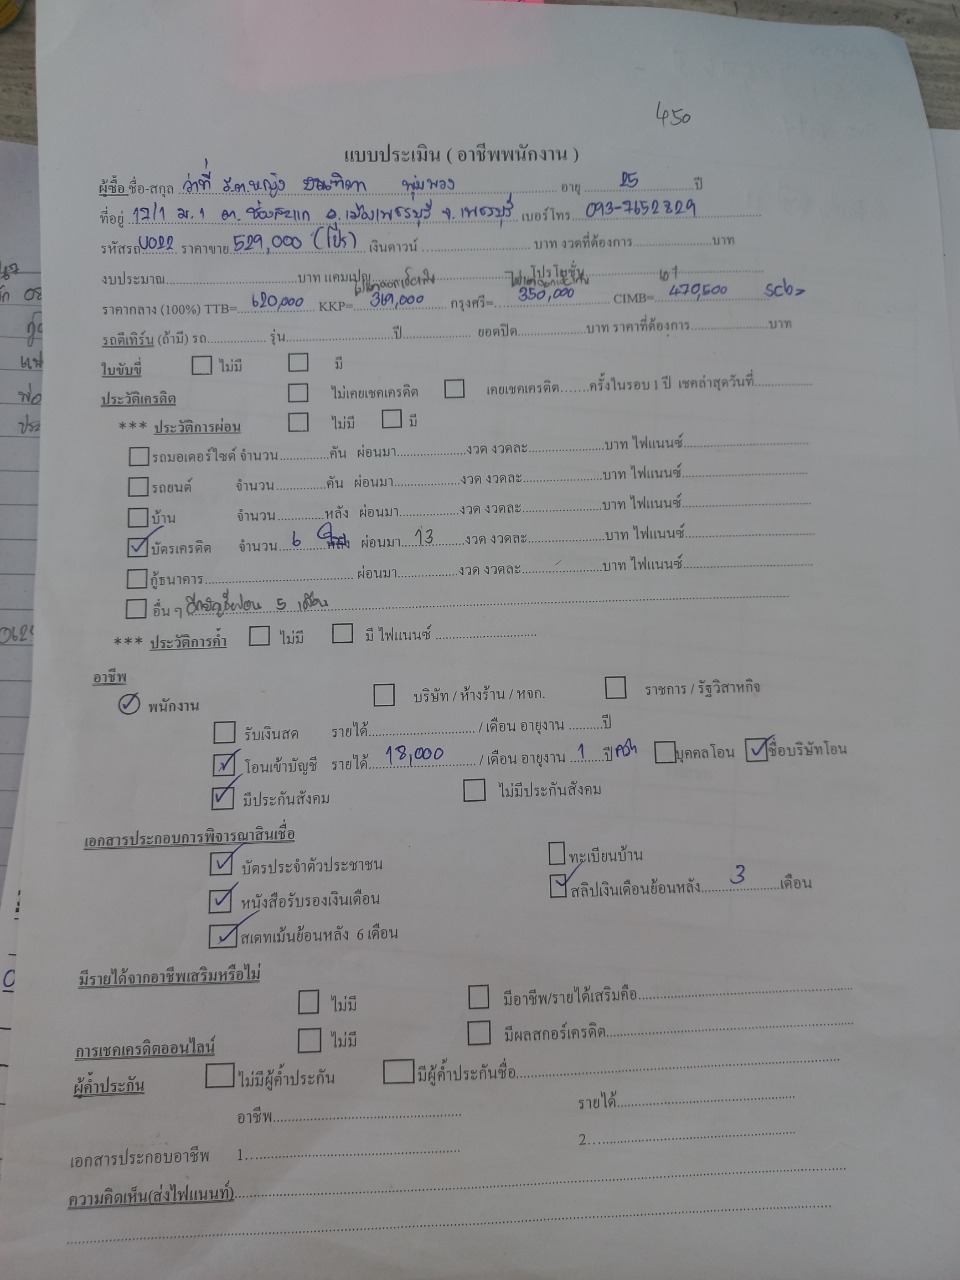 450
แบบประเมิน ( อาชีพพนักงาน )
ผู้ซื้อ ชื่อ-สกุล ว่าที่ ร.ต.หญิง พุ่มพวง อายุ 25 ปี
ที่อยู่ 17/1 ม.1 ต. ช่องสะแก อ.เมืองเพชรบุรี จ.เพชรบุรี เบอร์โทร. 093-7652829
รหัสรถ U022 ราคาขาย 529,000 (โปร) เงินดาวน์ บาท งวดที่ต้องการ บาท
งบประมาณ บาท แคมเปญ โปรโมชั่น
ราคากลาง (100%) TTB= 620,000 KKP= 319,000 กรุงศรี= 350,000 CIMB= 470,500 SCB=
รถตีเทิร์น (ถ้ามี) รถ รุ่น ปี ยอดปิด บาท ราคาที่ต้องการ บาท
ใบขับขี่ ไม่มี มี
ประวัติเครดิต ไม่เคยเชคเครดิต เคยเชคเครดิต ครั้งในรอบ 1 ปี เชคล่าสุดวันที่
*** ประวัติการผ่อน ไม่มี มี
รถมอเตอร์ไซค์ จำนวน คัน ผ่อนมา งวด งวดละ บาท ไฟแนนซ์
รถยนต์ จำนวน คัน ผ่อนมา งวด งวดละ บาท ไฟแนนซ์
บ้าน จำนวน หลัง ผ่อนมา งวด งวดละ บาท ไฟแนนซ์
บัตรเครดิต จำนวน 6 ผ่อนมา 13 งวด งวดละ บาท ไฟแนนซ์
กู้ธนาคาร ผ่อนมา งวด งวดละ บาท ไฟแนนซ์
อื่น ๆ 5 เดือน
*** ประวัติการค้ำ ไม่มี มี ไฟแนนซ์
อาชีพ
พนักงาน บริษัท / ห้างร้าน / หจก. ราชการ / รัฐวิสาหกิจ
รับเงินสด รายได้ / เดือน อายุงาน ปี
โอนเข้าบัญชี รายได้ 18,000 / เดือน อายุงาน 1 ปี บุคคลโอน ชื่อบริษัทโอน
มีประกันสังคม ไม่มีประกันสังคม
เอกสารประกอบการพิจารณาสินเชื่อ
บัตรประจำตัวประชาชน ทะเบียนบ้าน
หนังสือรับรองเงินเดือน สลิปเงินเดือนย้อนหลัง 3 เดือน
สเตทเม้นย้อนหลัง 6 เดือน
มีรายได้จากอาชีพเสริมหรือไม่
ไม่มี มีอาชีพ/รายได้เสริมคือ
การเชคเครดิตออนไลน์ ไม่มี มีผลสกอร์เครดิต
ผู้ค้ำประกัน ไม่มีผู้ค้ำประกัน มีผู้ค้ำประกันชื่อ
อาชีพ รายได้
เอกสารประกอบอาชีพ 1. 2.
ความคิดเห็น(ส่งไฟแนนท์)